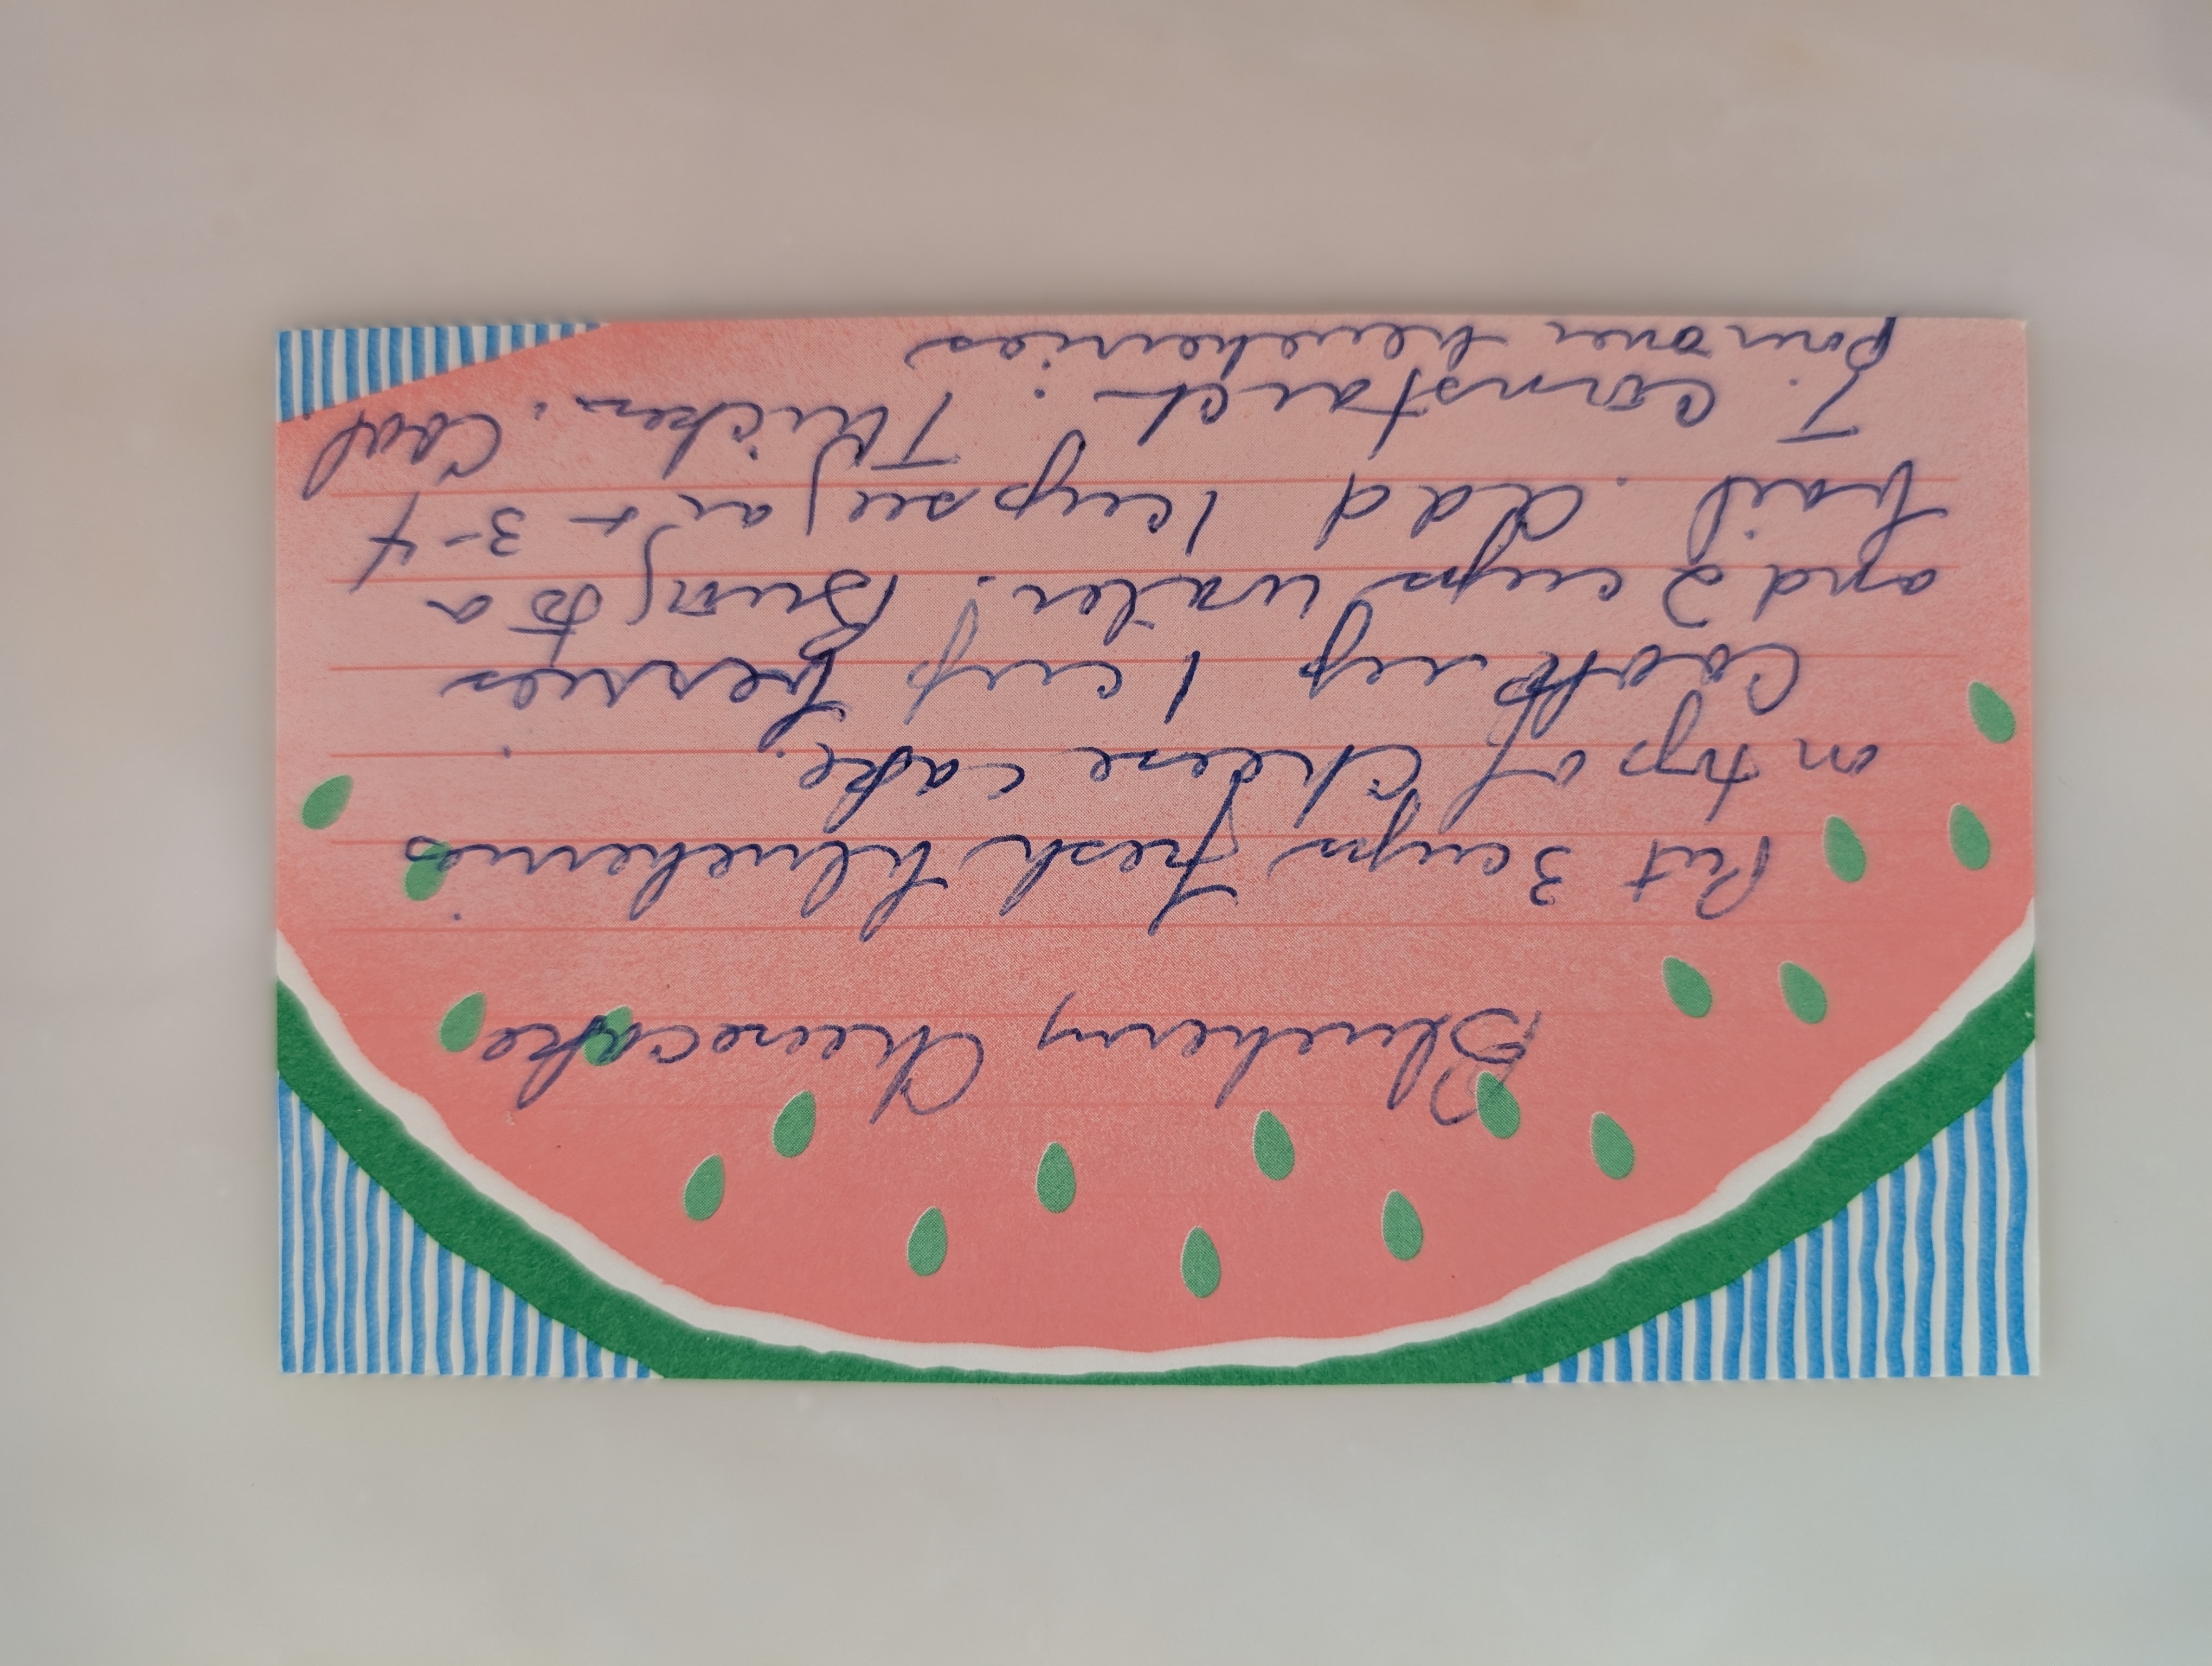 Blueberry Cheesecake
Put 3 cups fresh blueberries
on top of cheese cake.
Cook up 1 cup berries
and 2 cups water. Bring to a
boil. Add 1 cup sugar + 3-4
T. cornstarch. Thicken. Cool.
Pour over blueberries